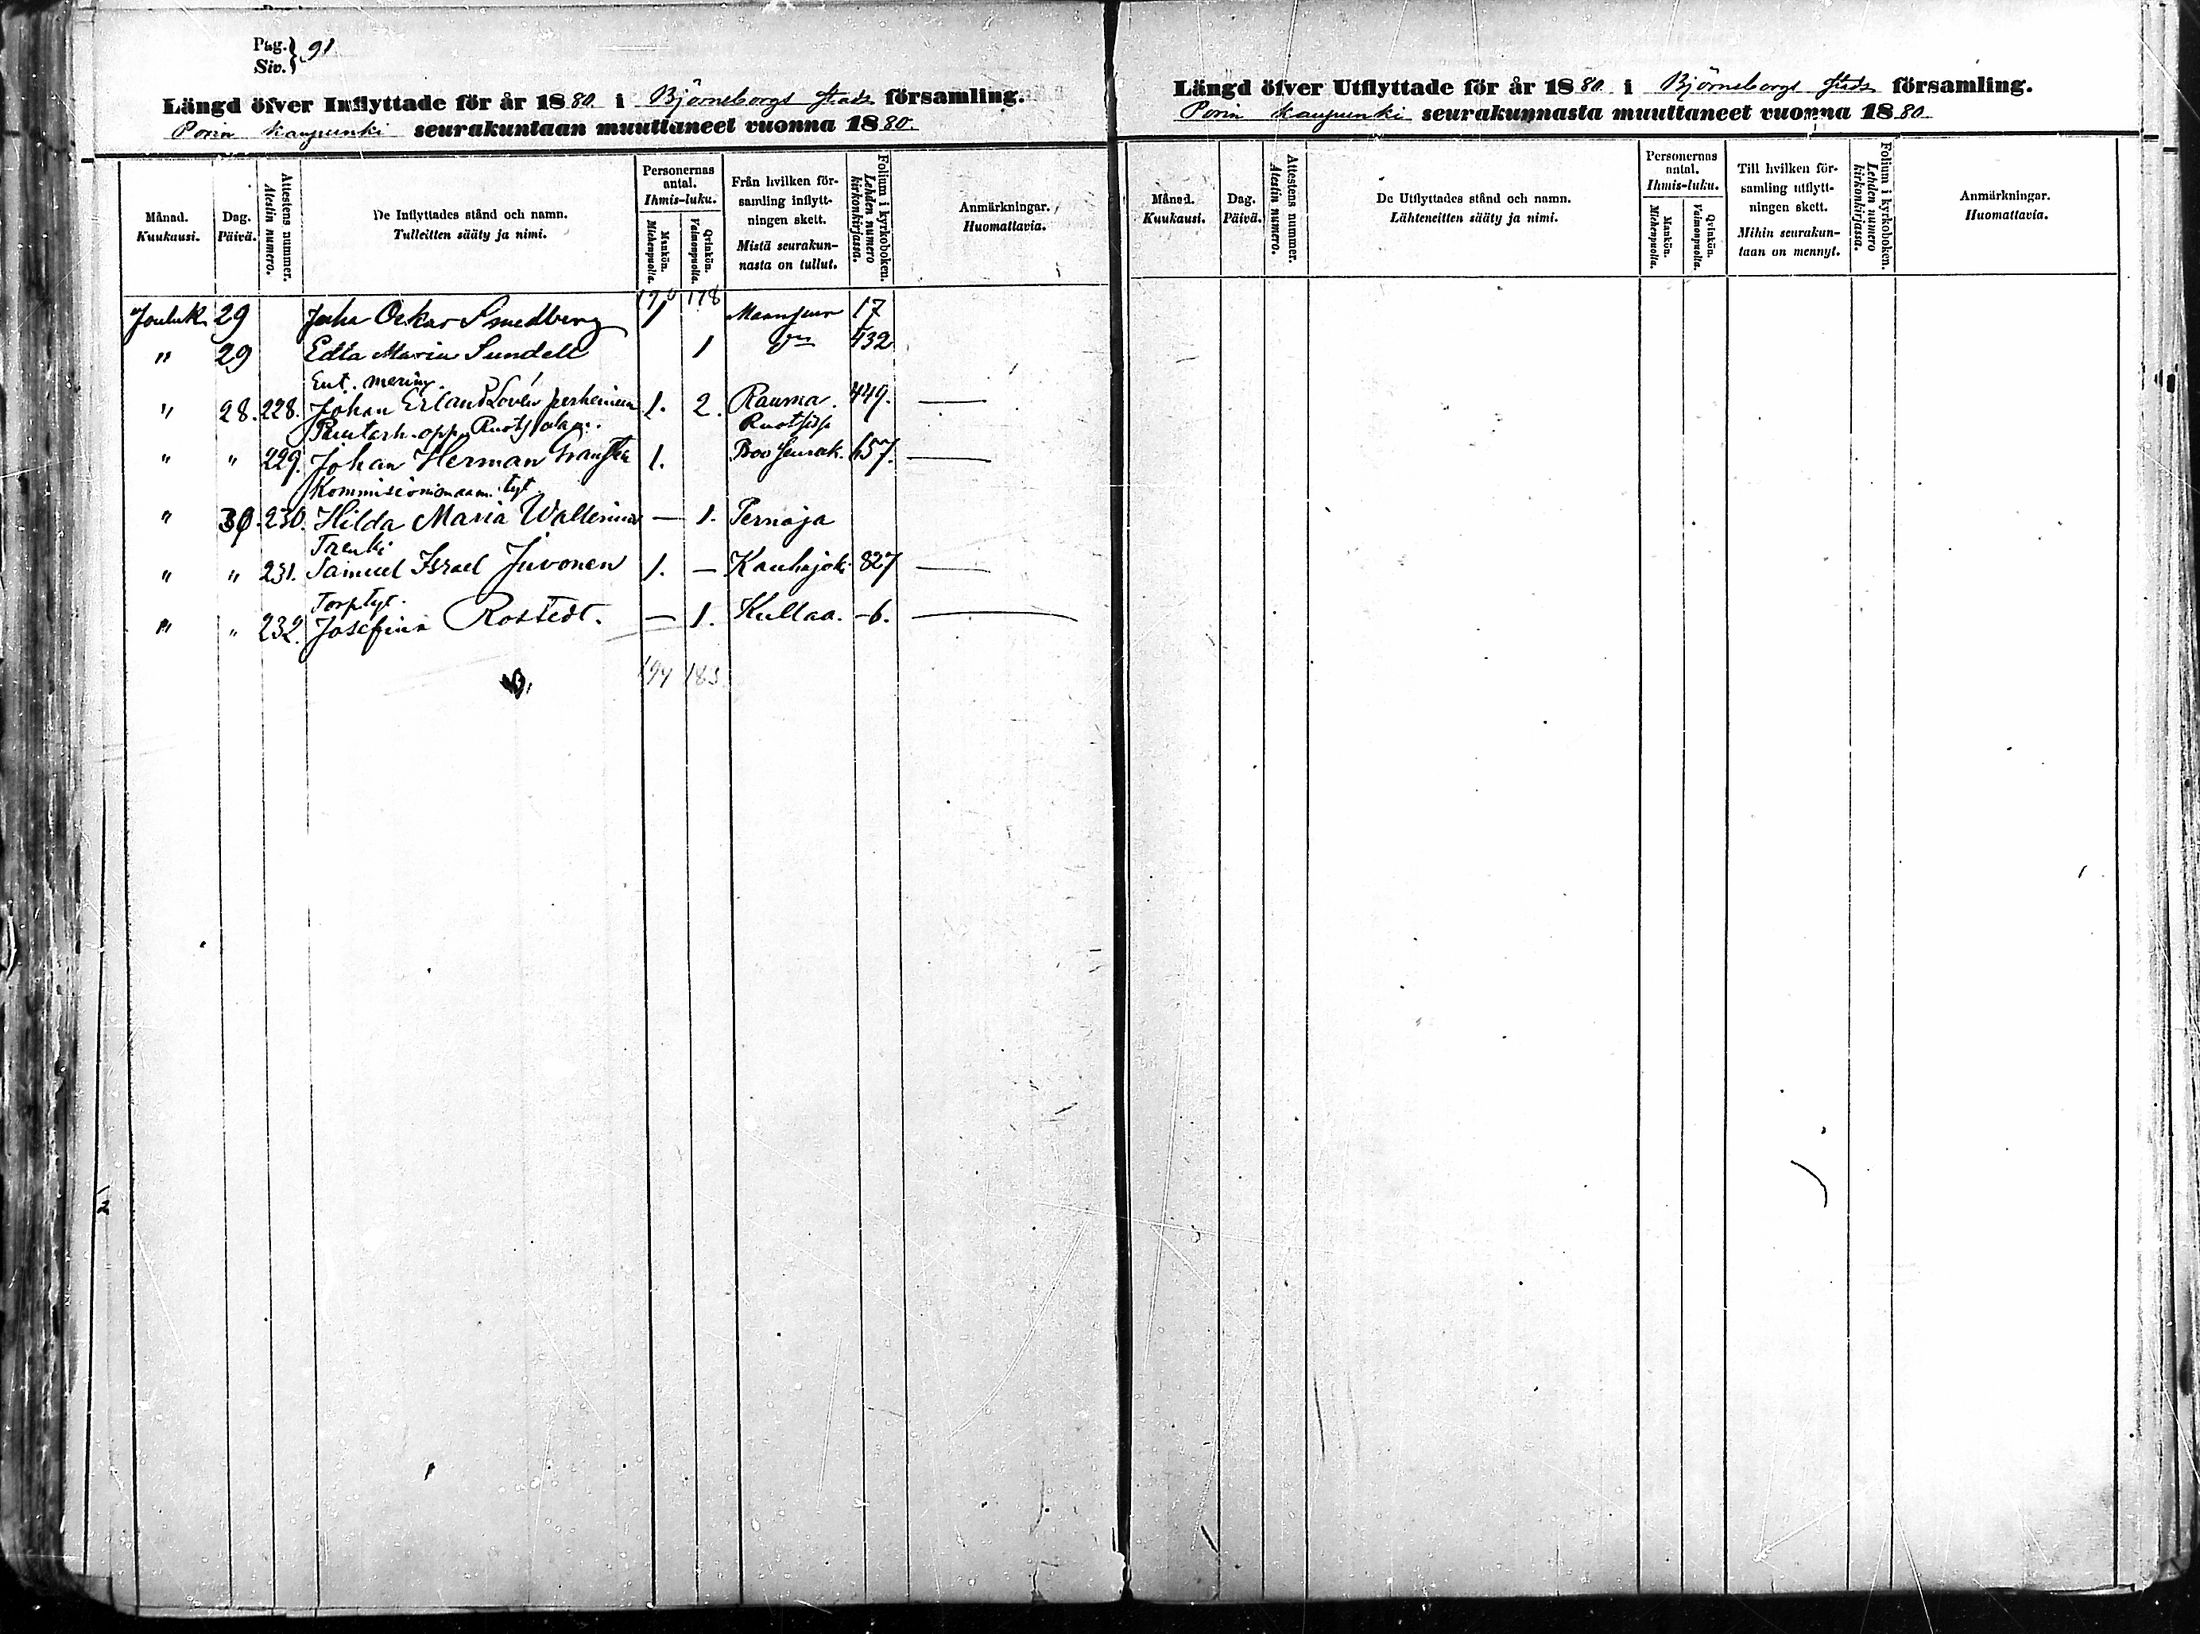 Pag. } 91
Siv. }
Längd öfver Inflyttade för år 1880. i Björneborgs stads församling.
Porin kaupunki seurakuntaan muuttaneet vuonna 1880.
Månad. Kuukausi. Dag. Päivä. Attestens nummer. Atestin numero. De Inflyttades stånd och namn. Tulleitten sääty ja nimi. Personernas antal. Ihmis-luku. Mankön. Miehenpuolia. Qvinkön. Vaimonpuolia. Från hvilken församling inflyttningen skett. Mistä seurakunnasta on tullut. Folium i kyrkoboken. Lehden numero kirkonkirjassa. Anmärkningar. Huomattavia.
190 178
Jouluk. 29 Juha Oskar Smedberg 1 17
" 29 Edla Maria Sundell 1 432
" 28. 228. Johan Erland Lovén perheineen 1. 2. Rauma. 449. —
Ruotsissa
" " 229. Johan Herman 1. Boo seurak. 657. —
Kommisionimaam. tyt
" 30. 230. Hilda Maria Wallenius — 1. Pernaja
Trenki
" " 231. Samuel Israel Juvonen 1. — Kauhajoki 827 —
Torp.tyt.
" " 232. Josefina Rostedt. — 1. Kullaa. —6. —
194 183.
Längd öfver Utflyttade för år 1880. i Björneborgs stads församling.
Porin kaupunki seurakunnasta muuttaneet vuonna 1880
Månad. Kuukausi. Dag. Päivä. Attestens nummer. Atestin numero. De Utflyttades stånd och namn. Lähteneitten sääty ja nimi. Personernas antal. Ihmis-luku. Mankön. Miehenpuolia. Qvinkön. Vaimonpuolia. Till hvilken församling utflyttningen skett. Mihin seurakuntaan on mennyt. Folium i kyrkoboken. Lehden numero kirkonkirjassa. Anmärkningar. Huomattavia.